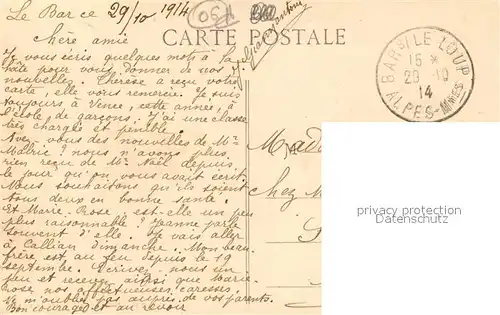 Le Bar ce 29/10 1914
CARTE POSTALE
Chère amie
Je vous écris quelques mots à la
hâte pour vous donner de nos
nouvelles. Thérèse a reçu votre
carte, elle vous remercie. Je suis
toujours à Vence, cette année, à
l'école de garçons. J'ai une classe
très chargée et pénible.
Avez-vous des nouvelles de Mr
Malric? nous n'avons plus
rien reçu de Me Noël depuis
le jour qu'on vous avait écrit.
Nous souhaitons qu'ils soient
tous deux en bonne santé.
Et Marie-Rose, est-elle un peu
plus raisonnable? Jeanne parle
souvent d'elle. Je vais aller
à Callian dimanche. Mon beau
frère, est au feu depuis le 19
septembre. Ecrivez-nous un
peu et recevez ainsi que Marie-
Rose nos affectueuses caresses.
Ne m'oubliez pas auprès de vos parents.
Bon courage et au revoir
BAR S/ LE LOUP
15 *
29-10
14
ALPES-MMES
Chez M
privacy protection
Datenschutz